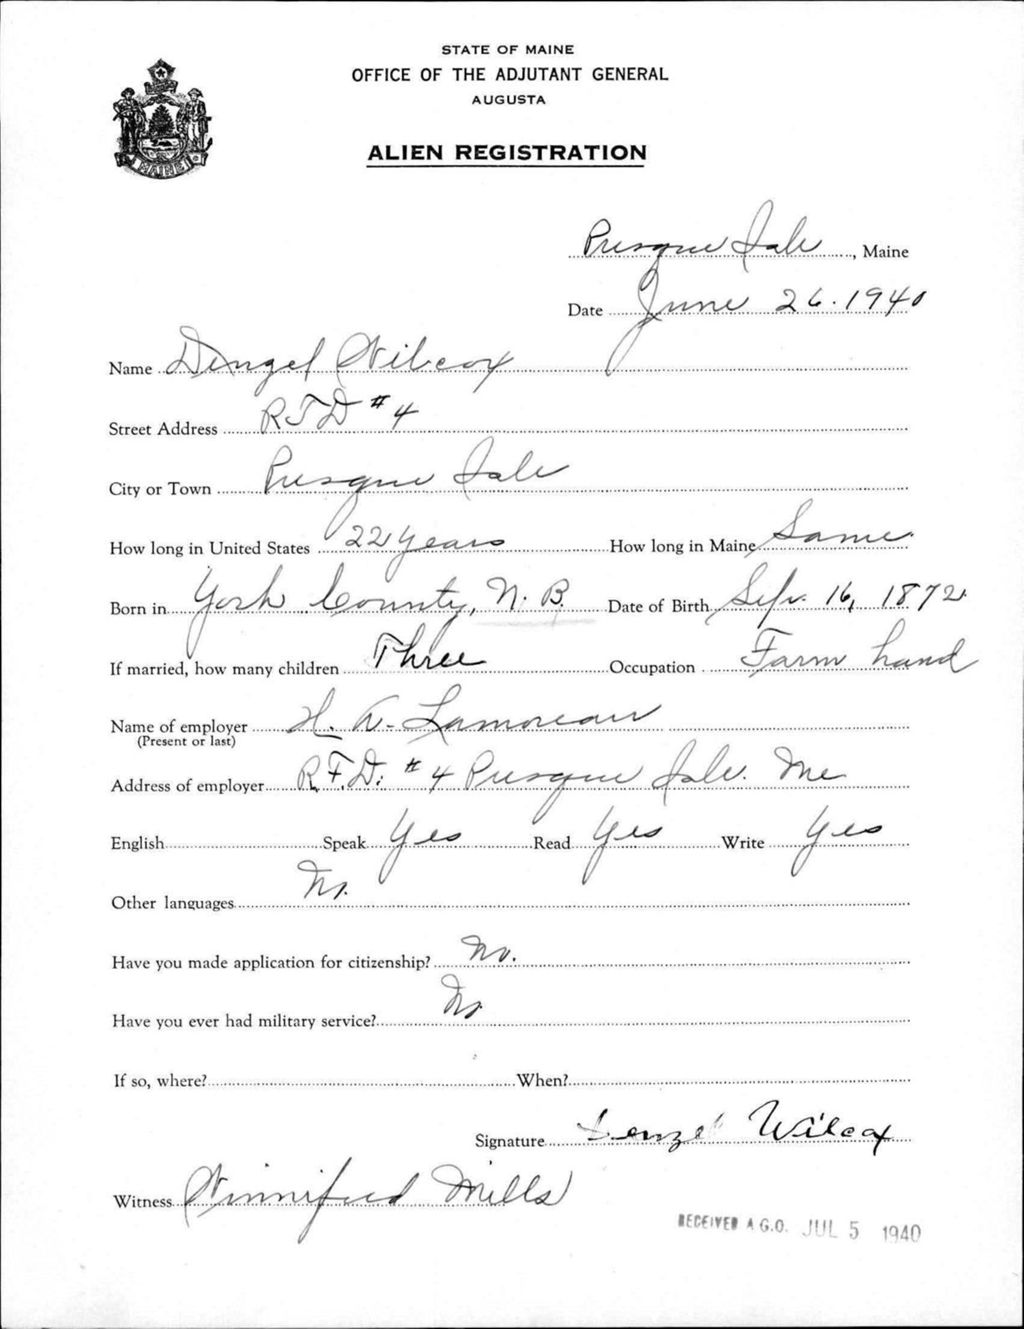 STATE OF MAINE
OFFICE OF THE ADJUTANT GENERAL
AUGUSTA
ALIEN REGISTRATION
MAINE
Presque Isle, Maine
Date June 26. 1940
Name Denzel Wilcox
Street Address RFD #4
City or Town Presque Isle
How long in United States 22 years How long in Maine Same
Born in York County, N. B. Date of Birth Sept. 16, 1872
If married, how many children Three Occupation Farm hand
Name of employer H. W. Lamoreau
(Present or last)
Address of employer R.F.D. #4 Presque Isle. Me
English Speak Yes Read Yes Write Yes
Other languages No.
Have you made application for citizenship? No.
Have you ever had military service? No
If so, where? When?
Signature Denzel Wilcox
Witness Winnifred Mills
RECEIVED A.G.O. JUL 5 1940